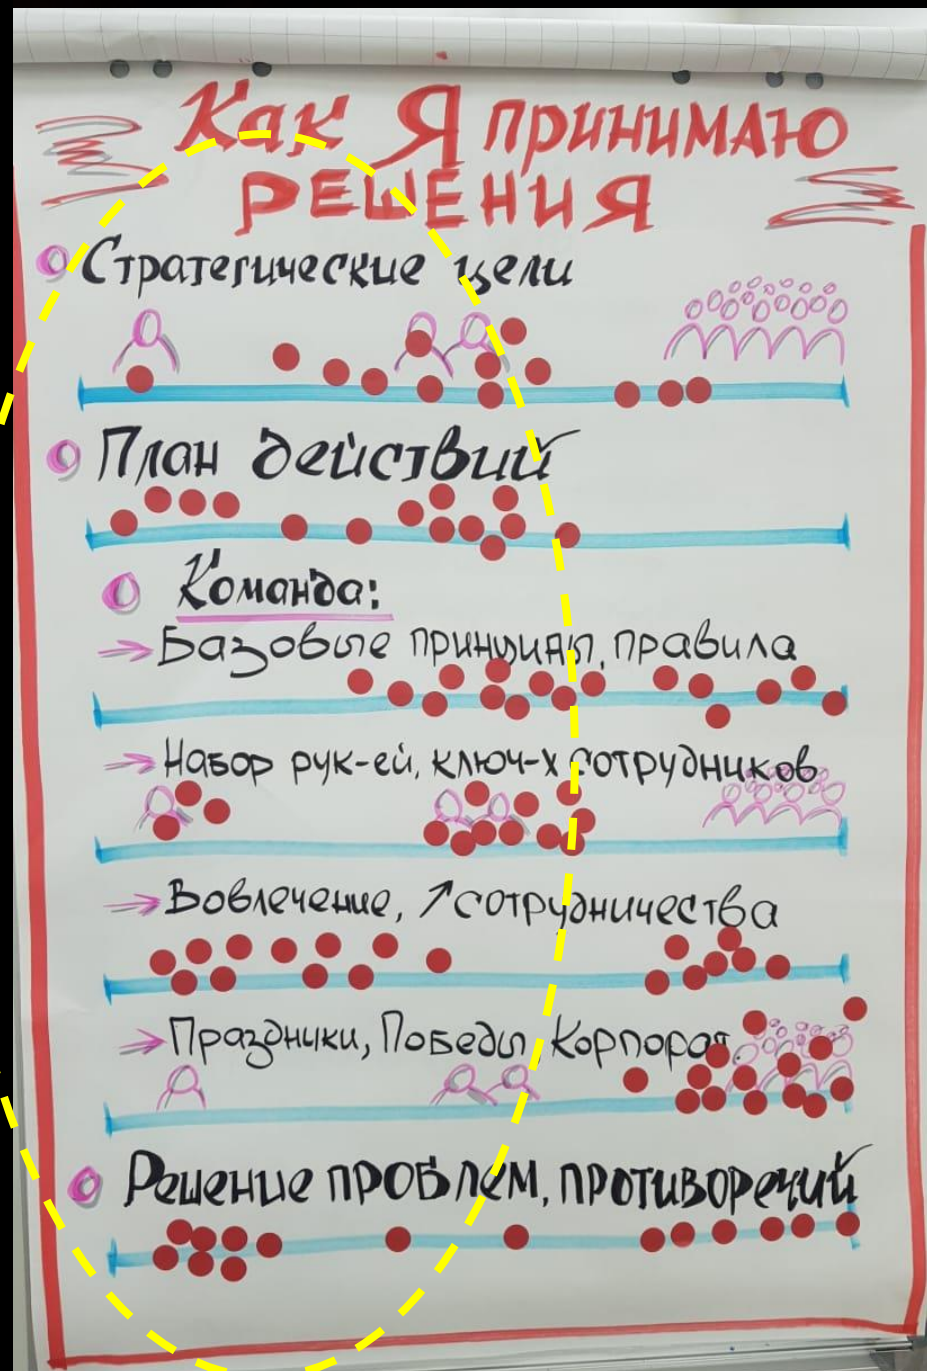 Как Я принимаю
РЕШЕНИЯ
Стратегические цели
План действий
Команда:
→ Базовые принципы, правила
→ Набор рук-ей, ключ-х сотрудников
→ Вовлечение, ↗сотрудничества
→ Праздники, Победы, Корпорат.
Решение проблем, противоречий